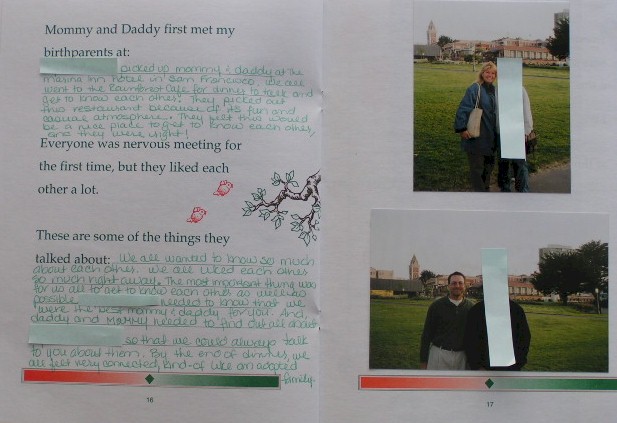 Mommy and Daddy first met my
birthparents at:
picked up mommy & daddy at the
Marina Inn Hotel in San Francisco. We all
went to the Rainforest Cafe for dinner to talk and
get to know each other. They picked out
this restaurant because of its fun and
casual atmosphere. They felt this would
be a nice place to get to know each other,
and they were right!
Everyone was nervous meeting for
the first time, but they liked each
other a lot.
These are some of the things they
talked about: We all wanted to know so much
about each other. We all liked each other
so much right away. The most important thing was
for us all to get to know each other as well as
possible. needed to know that we
were the best mommy & daddy for you. And,
daddy and mommy needed to find out all about
so that we could always talk
to you about them. By the end of dinner, we
all felt very connected, kind-of like an adopted
family.
16
17